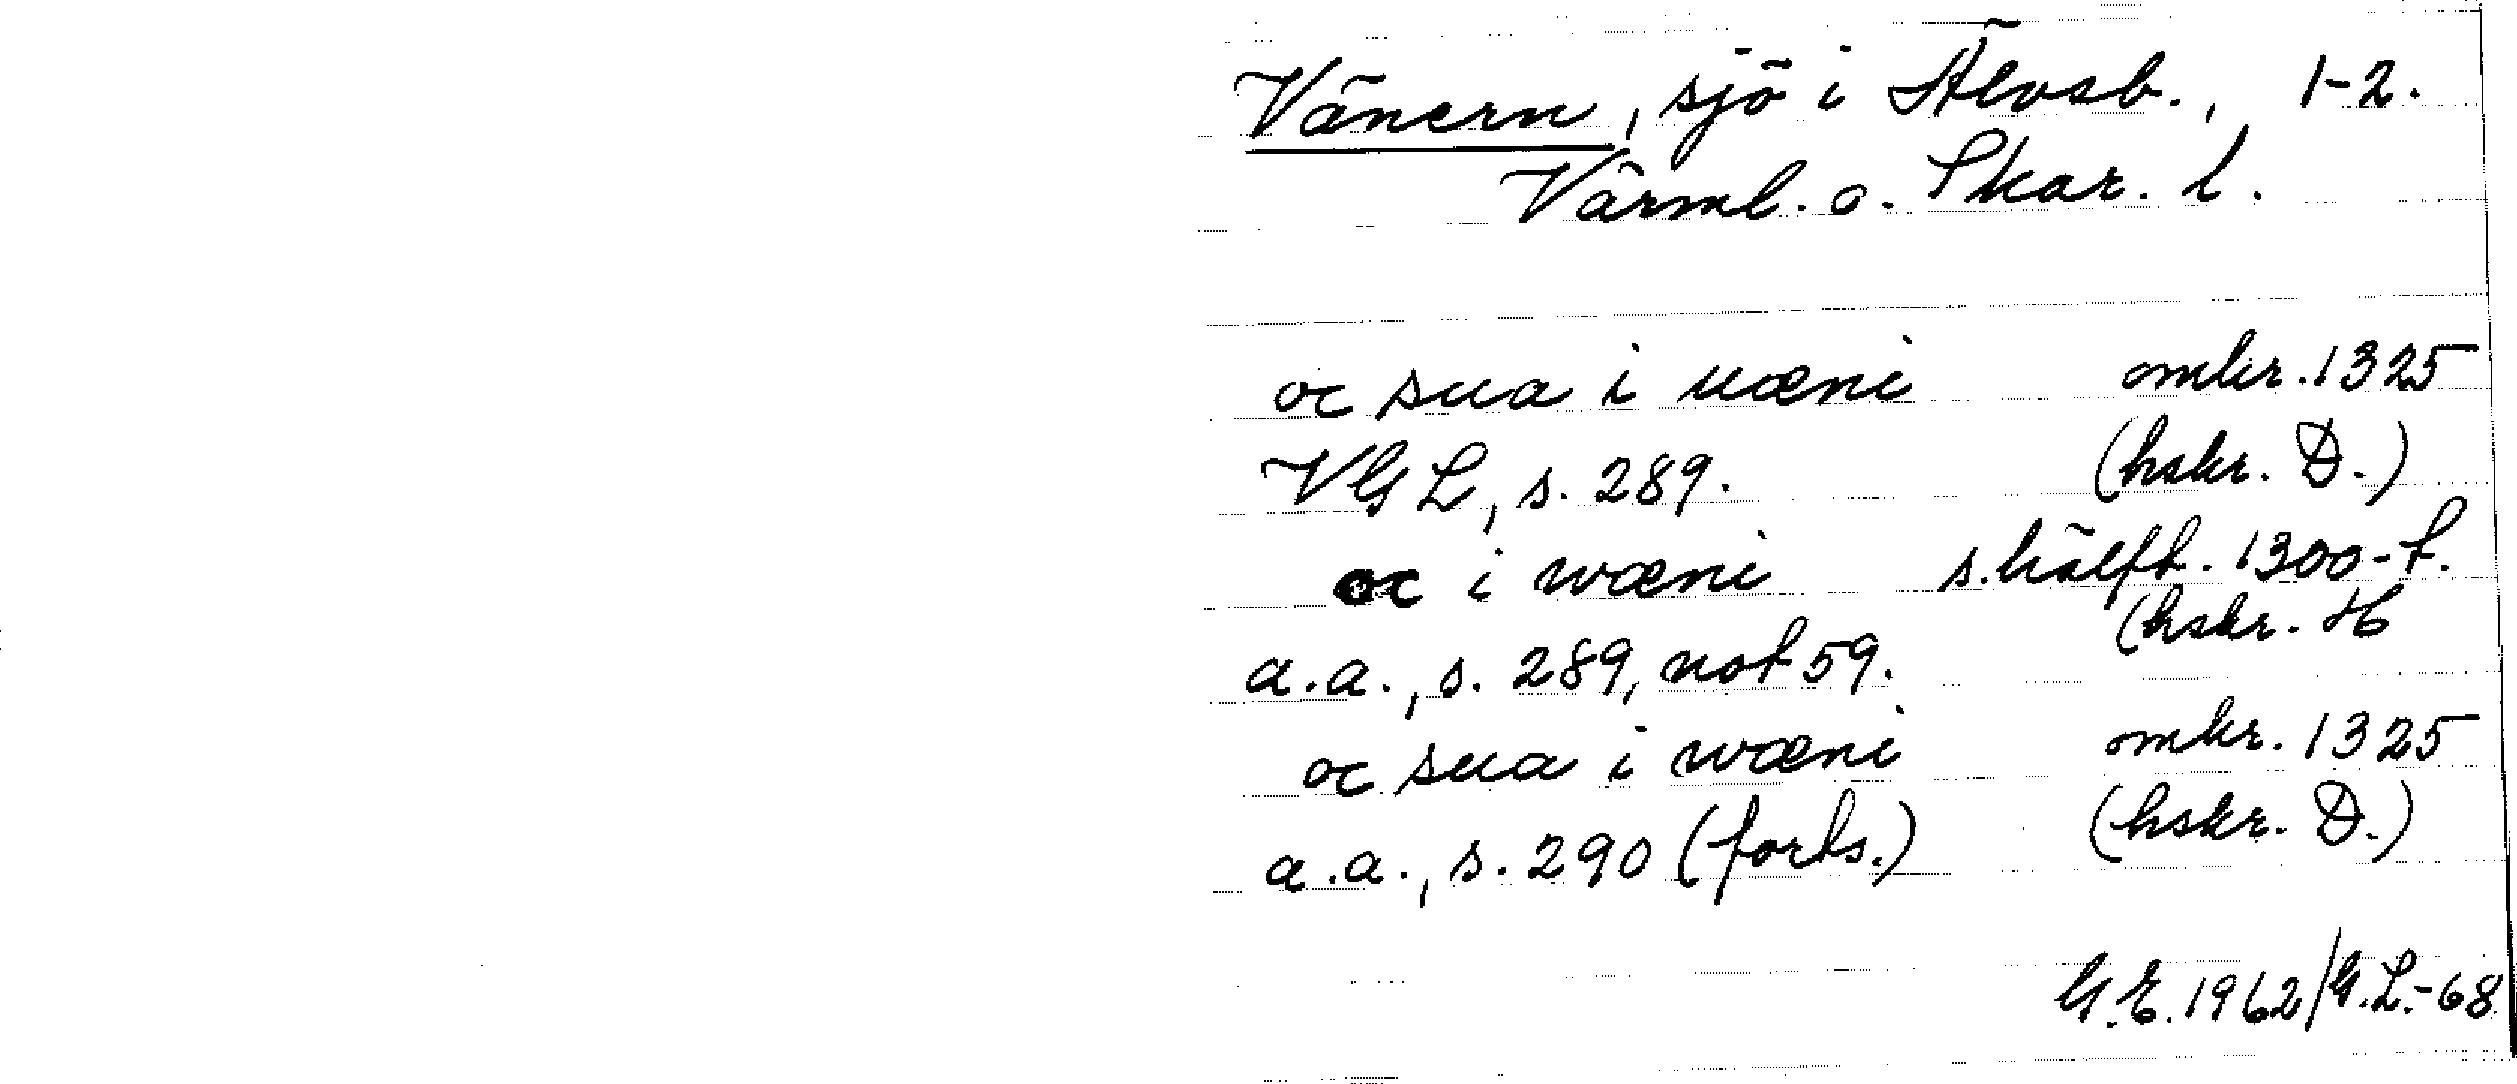 Vänern, sjö i Älvsb., 1-2.
Värml. o. Skar. l.
oc sua i uæni omkr. 1325
VGL, s. 289. (hskr. D.)
oc i wæni s. hälft. 1300-t.
a.a., s. 289, not 59. (hskr. H
oc sua i wæni omkr. 1325
a.a., s. 290 (forts.) (hskr. D.)
G.E. 1962/G.L.-68